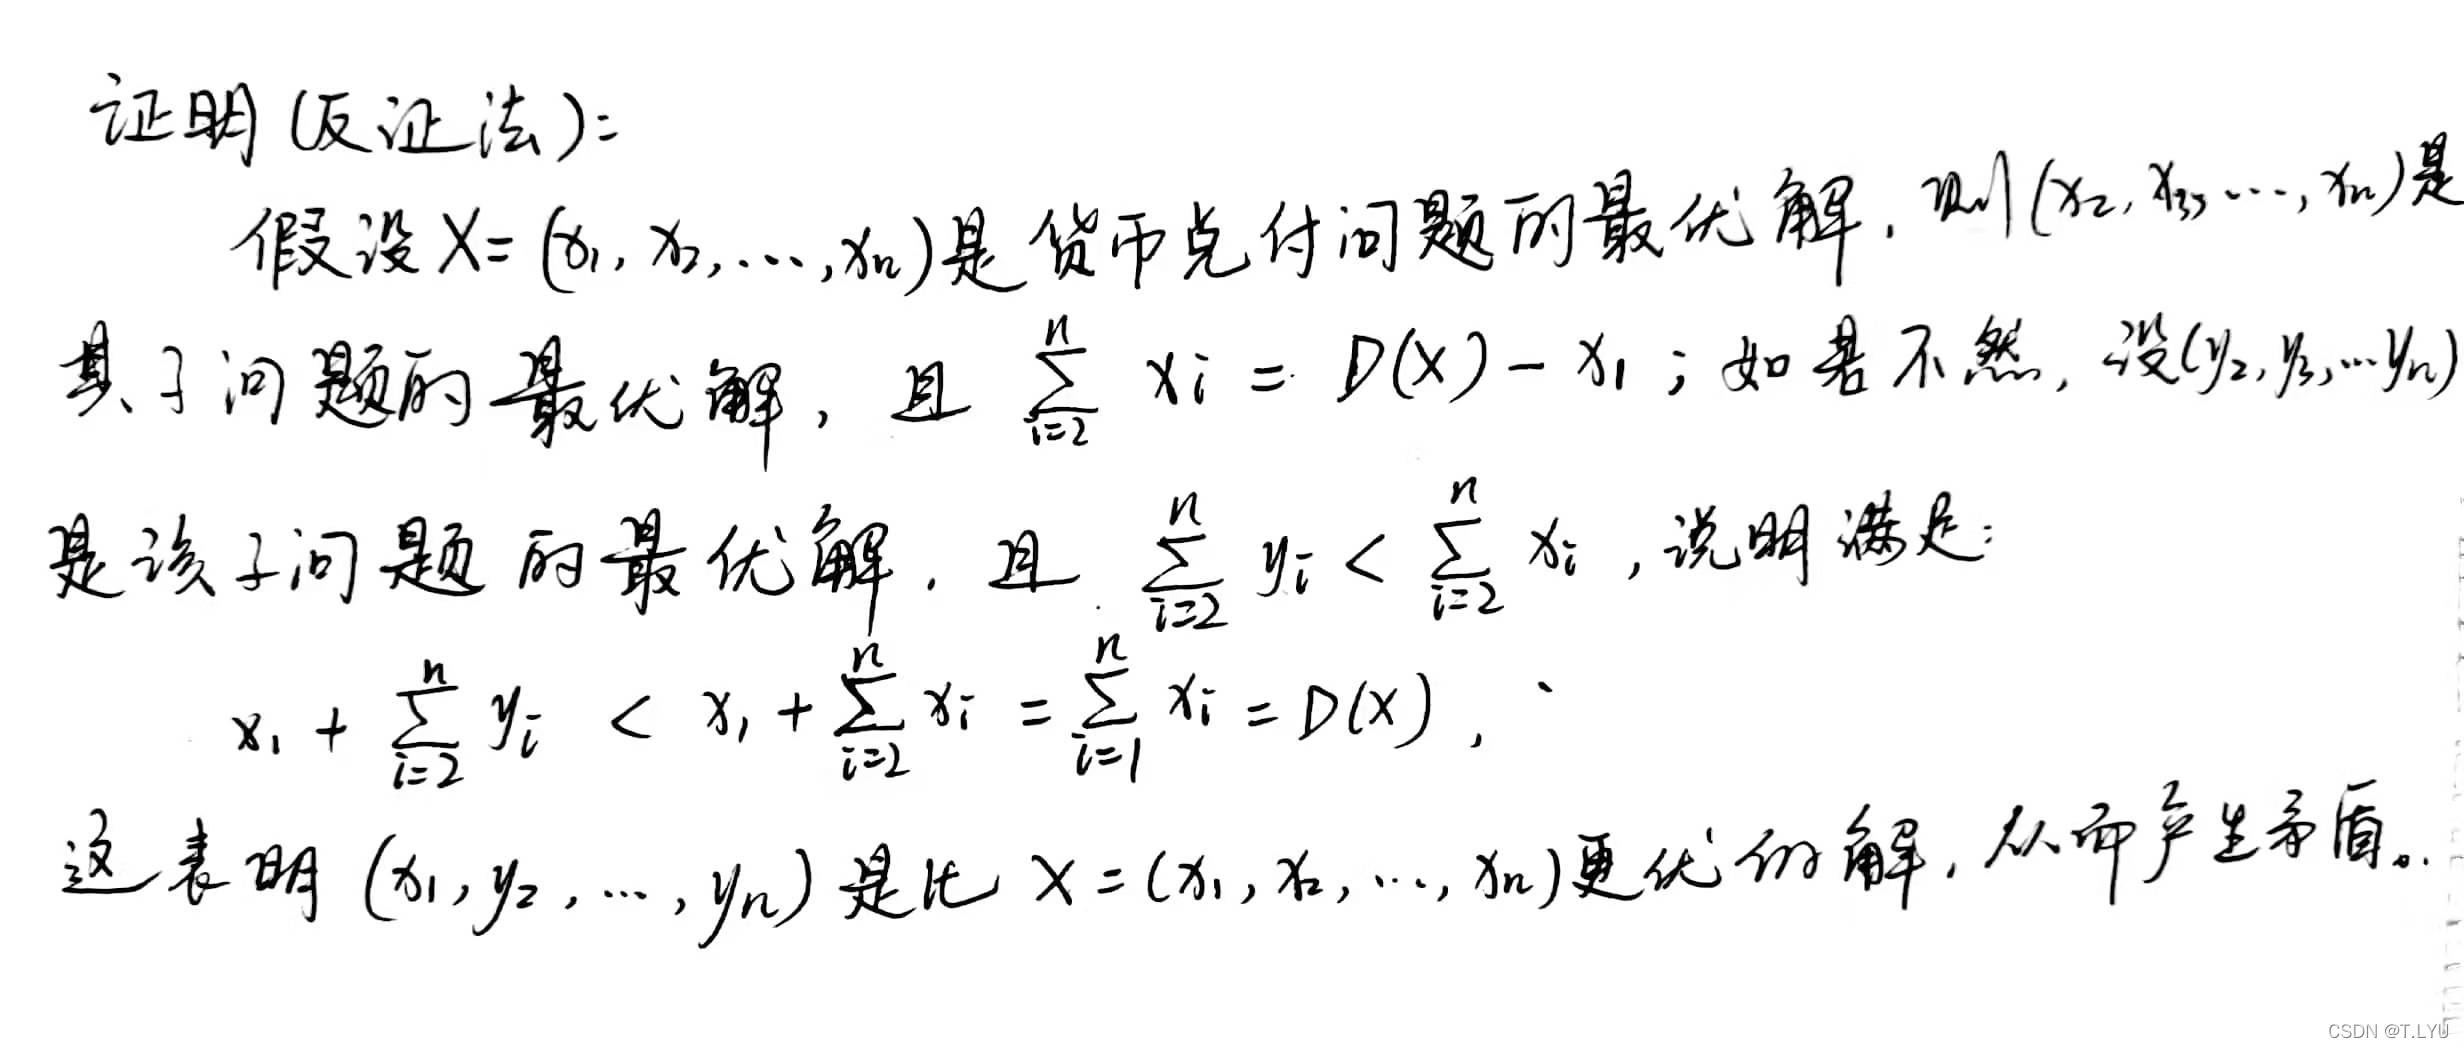 证明(反证法):
假设X=(x₁, x₂, ..., xₙ)是货币兑付问题的最优解, 则(x₂, x₃, ..., xₙ)是
其子问题的最优解, 且 ∑_{i=2}^{n} xi = D(X) - x₁; 如若不然, 设(y₂, y₃, ...yₙ)
是该子问题的最优解, 且 ∑_{i=2}^{n} yi < ∑_{i=2}^{n} xi, 说明满足:
x₁ + ∑_{i=2}^{n} yi < x₁ + ∑_{i=2}^{n} xi = ∑_{i=1}^{n} xi = D(X),
这表明 (x₁, y₂, ..., yₙ) 是比 X = (x₁, x₂, ..., xₙ)更优的解, 从而产生矛盾。
CSDN @T.LYU